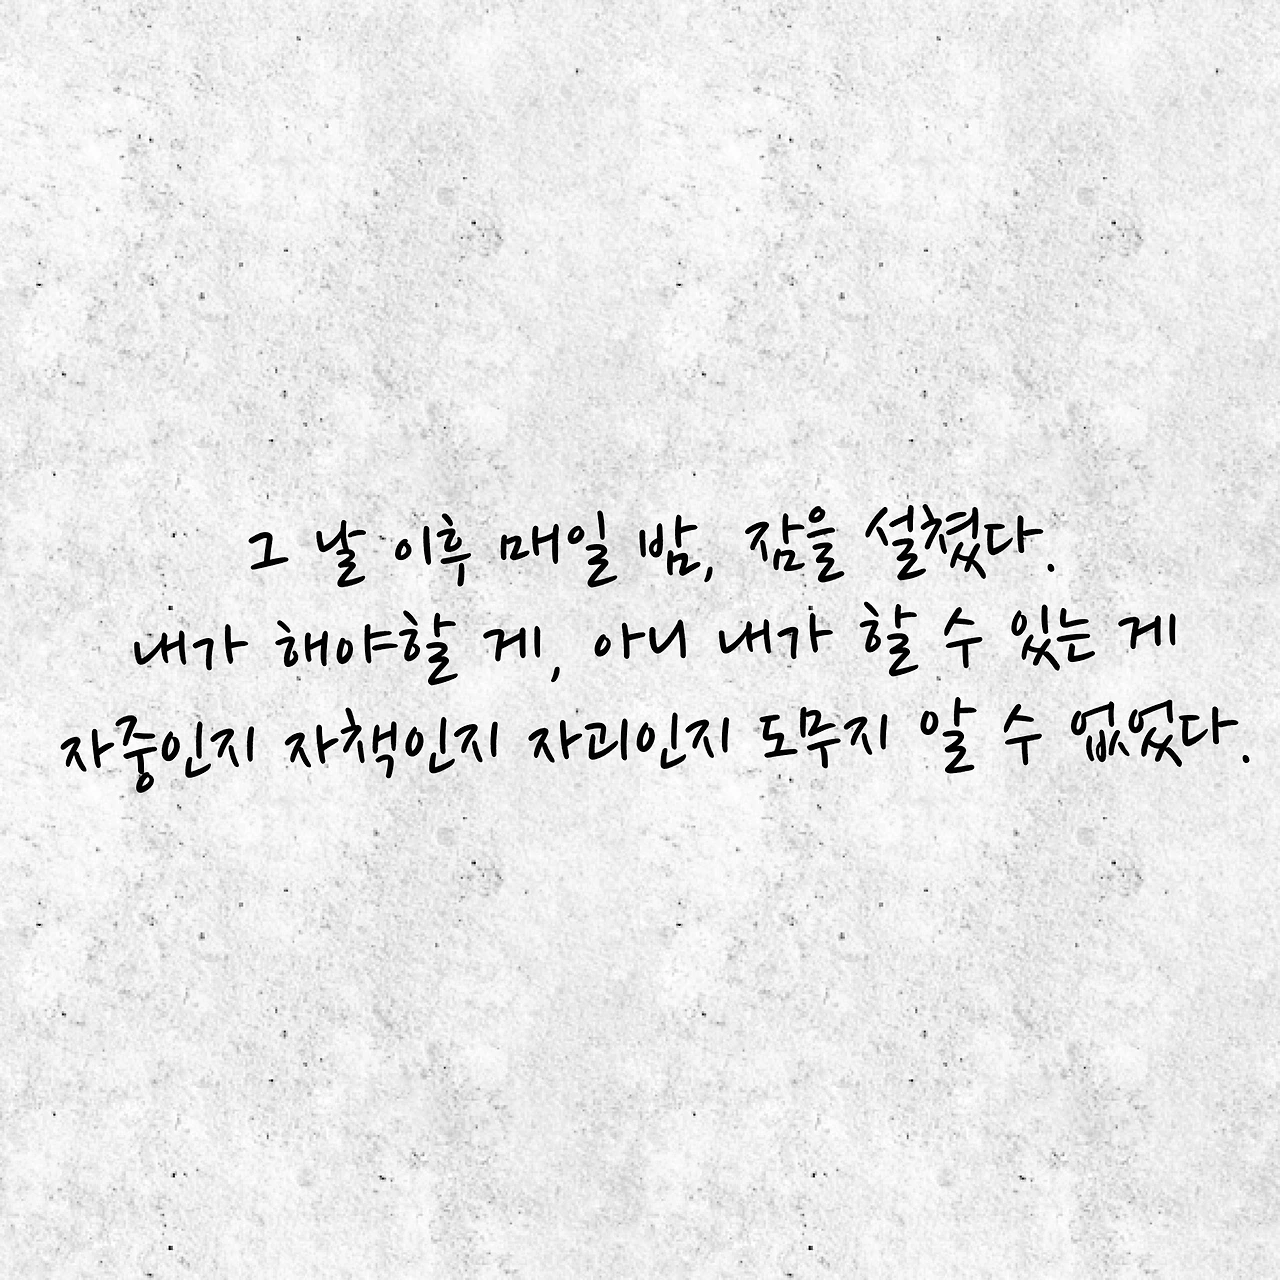 그 날 이후 매일 밤, 잠을 설쳤다.
내가 해야할 게, 아니 내가 할 수 있는 게
자중인지 자책인지 자괴인지 도무지 알 수 없었다.